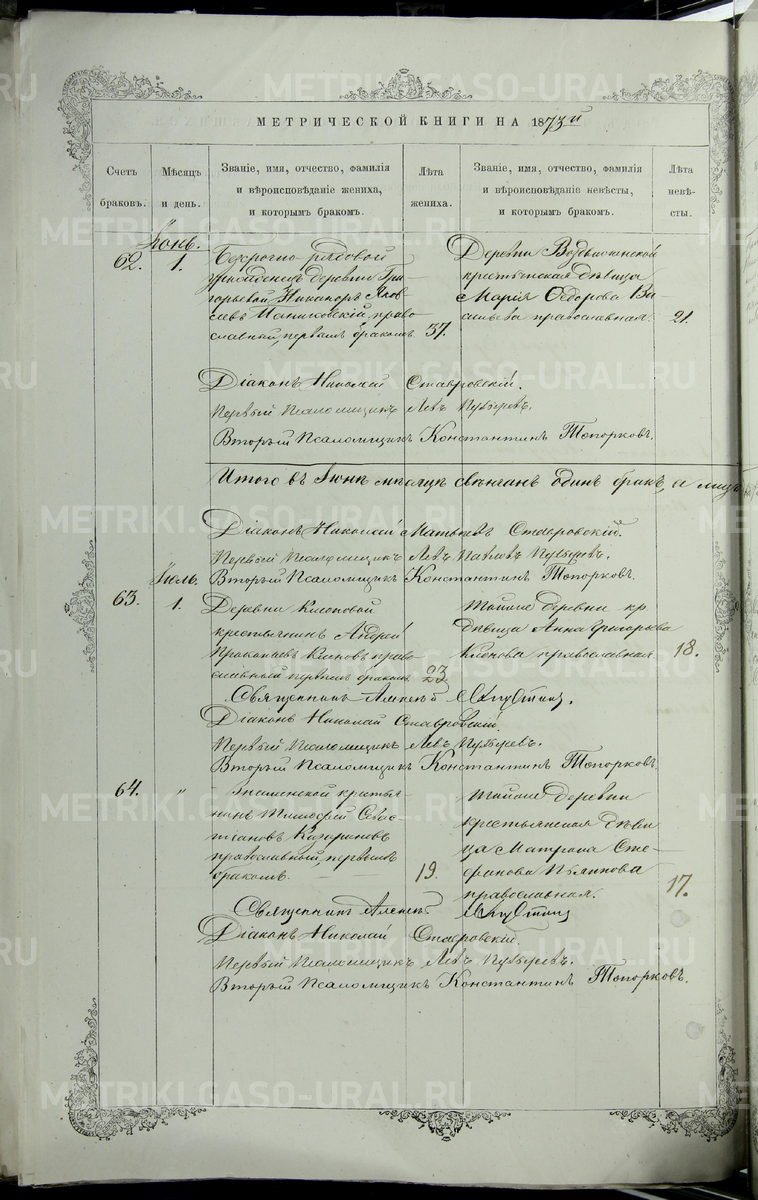 МЕТРИЧЕСКОЙ КНИГИ НА 1873й
Счетъ браковъ.
Мѣсяцъ и день.
Званіе, имя, отчество, фамилія и вѣроисповѣданіе жениха, и которымъ бракомъ.
Лѣта жениха.
Званіе, имя, отчество, фамилія и вѣроисповѣданіе невѣсты, и которымъ бракомъ.
Лѣта невѣсты.
Іюнь.
62. 1.
рядовой
деревни Гри-
горьевой Никаноръ Яков-
левъ право-
славный, первымъ бракомъ. 37.
Деревни
крестьянская дѣвица
Марія Ѳедорова Ва-
сильева православная. 21.
Діаконъ Николай Ставровскій.
Первый Псаломщикъ Левъ
Второй Псаломщикъ Константинъ Топорковъ.
Итого въ Іюнѣ мѣсяцѣ свѣнчанъ одинъ бракъ, а лицъ
Діаконъ Николай Матвѣевъ Ставровскій.
Первый Псаломщикъ Левъ Павловъ
Іюль.
Второй Псаломщикъ Константинъ Топорковъ.
63. 1.
Деревни
крестьянинъ Андрей
Прокопьевъ право-
славный первымъ бракомъ 23
Тойже деревни кр.
дѣвица Анна Григорьева
православная 18.
Священникъ Алексѣй
Діаконъ Николай Ставровскій.
Первый Псаломщикъ Левъ
Второй Псаломщикъ Константинъ Топорковъ.
64. "
Знаменской крестья-
нинъ Тимофей Севас-
тьяновъ
православный, первымъ
бракомъ. 19.
Тойже деревни
крестьянская дѣви-
ца Матрона Сте-
фанова
православная. 17.
Священникъ Алексѣй
Діаконъ Николай Ставровскій.
Первый Псаломщикъ Левъ
Второй Псаломщикъ Константинъ Топорковъ.
METRIKI.GASO-URAL.RU